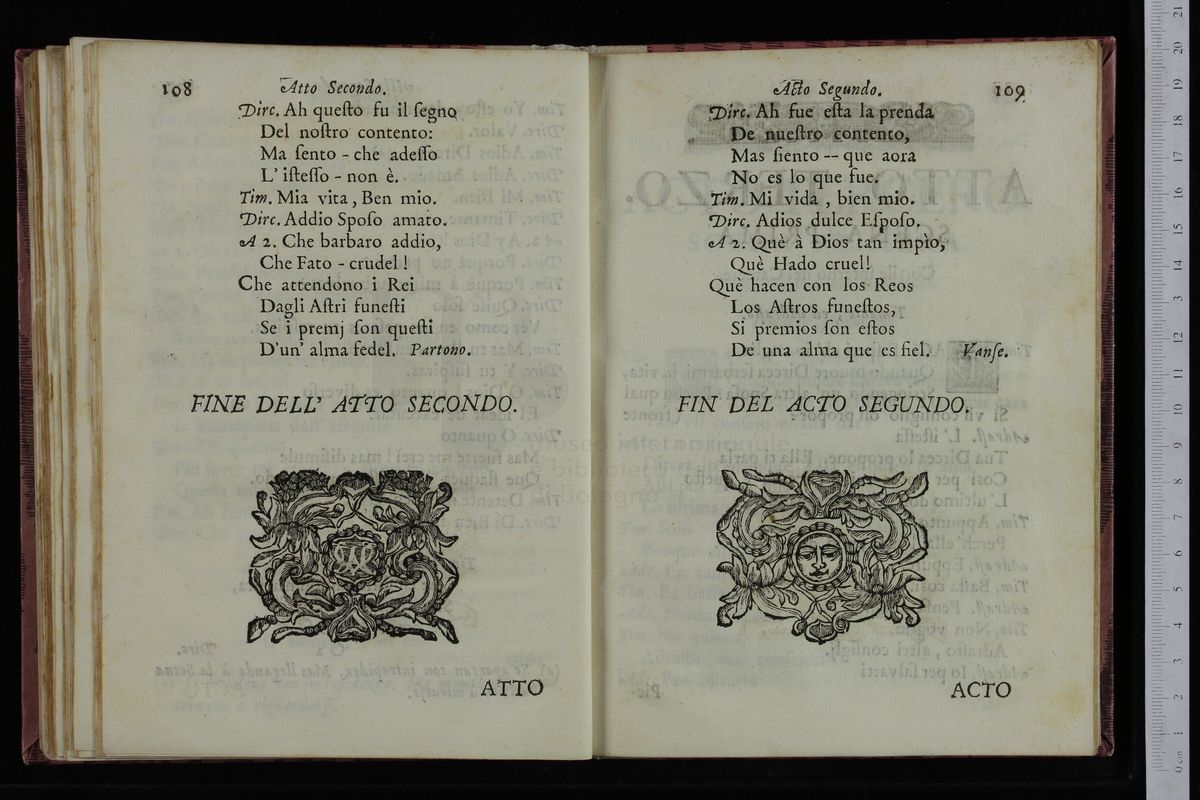 108
Atto Secondo.
Dirc. Ah queſto fu il ſegno
Del noſtro contento:
Ma ſento - che adeſſo
L' iſteſſo - non è.
Tim. Mia vita, Ben mio.
Dirc. Addio Spoſo amato.
A 2. Che barbaro addio,
Che Fato - crudel!
Che attendono i Rei
Dagli Aſtri funeſti
Se i premj ſon queſti
D'un' alma fedel. Partono.
FINE DELL' ATTO SECONDO.
ATTO
Acto Segundo.
109
Dirc. Ah fue eſta la prenda
De nueſtro contento,
Mas ſiento -- que aora
No es lo que fue.
Tim. Mi vida, bien mio.
Dirc. Adios dulce Eſpoſo.
A 2. Què à Dios tan impìo,
Què Hado cruel!
Què hacen con los Reos
Los Aſtros funeſtos,
Si premios ſon eſtos
De una alma que es fiel. Vanſe.
FIN DEL ACTO SEGUNDO.
ACTO
museo internazionale
e biblioteca
bologna
0 cm 1 2 3 4 5 6 7 8 9 10 11 12 13 14 15 16 17 18 19 20 21